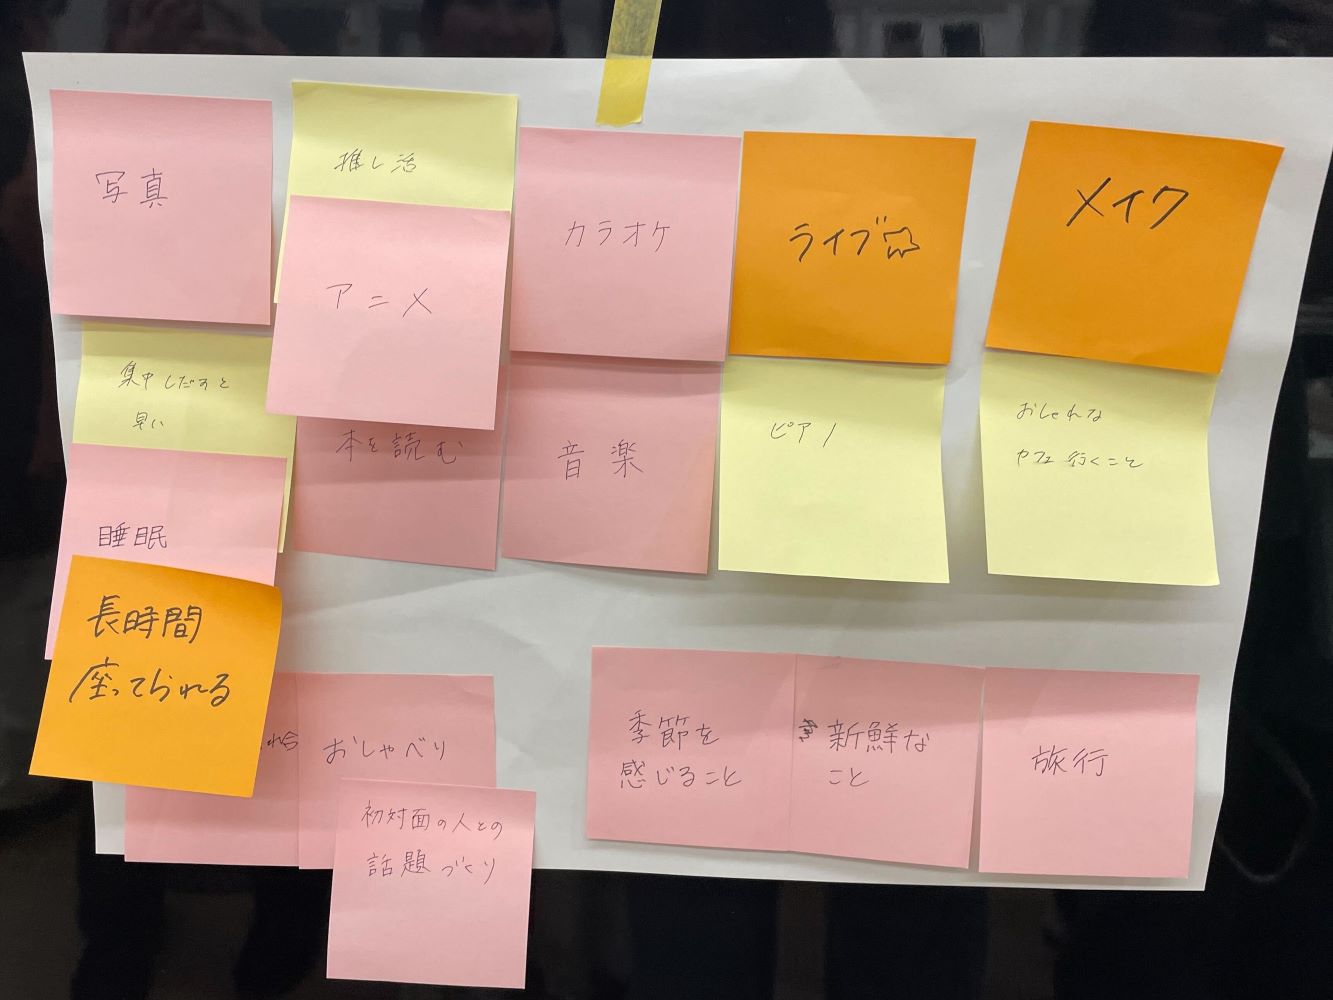 写真
推し活
アニメ
カラオケ
ライブ☆
メイク
集中しだすと
早い
本を読む
音楽
ピアノ
おしゃれな
カフェ行くこと
睡眠
長時間
座ってられる
おしゃべり
初対面の人との
話題づくり
季節を
感じること
新鮮な
こと
旅行